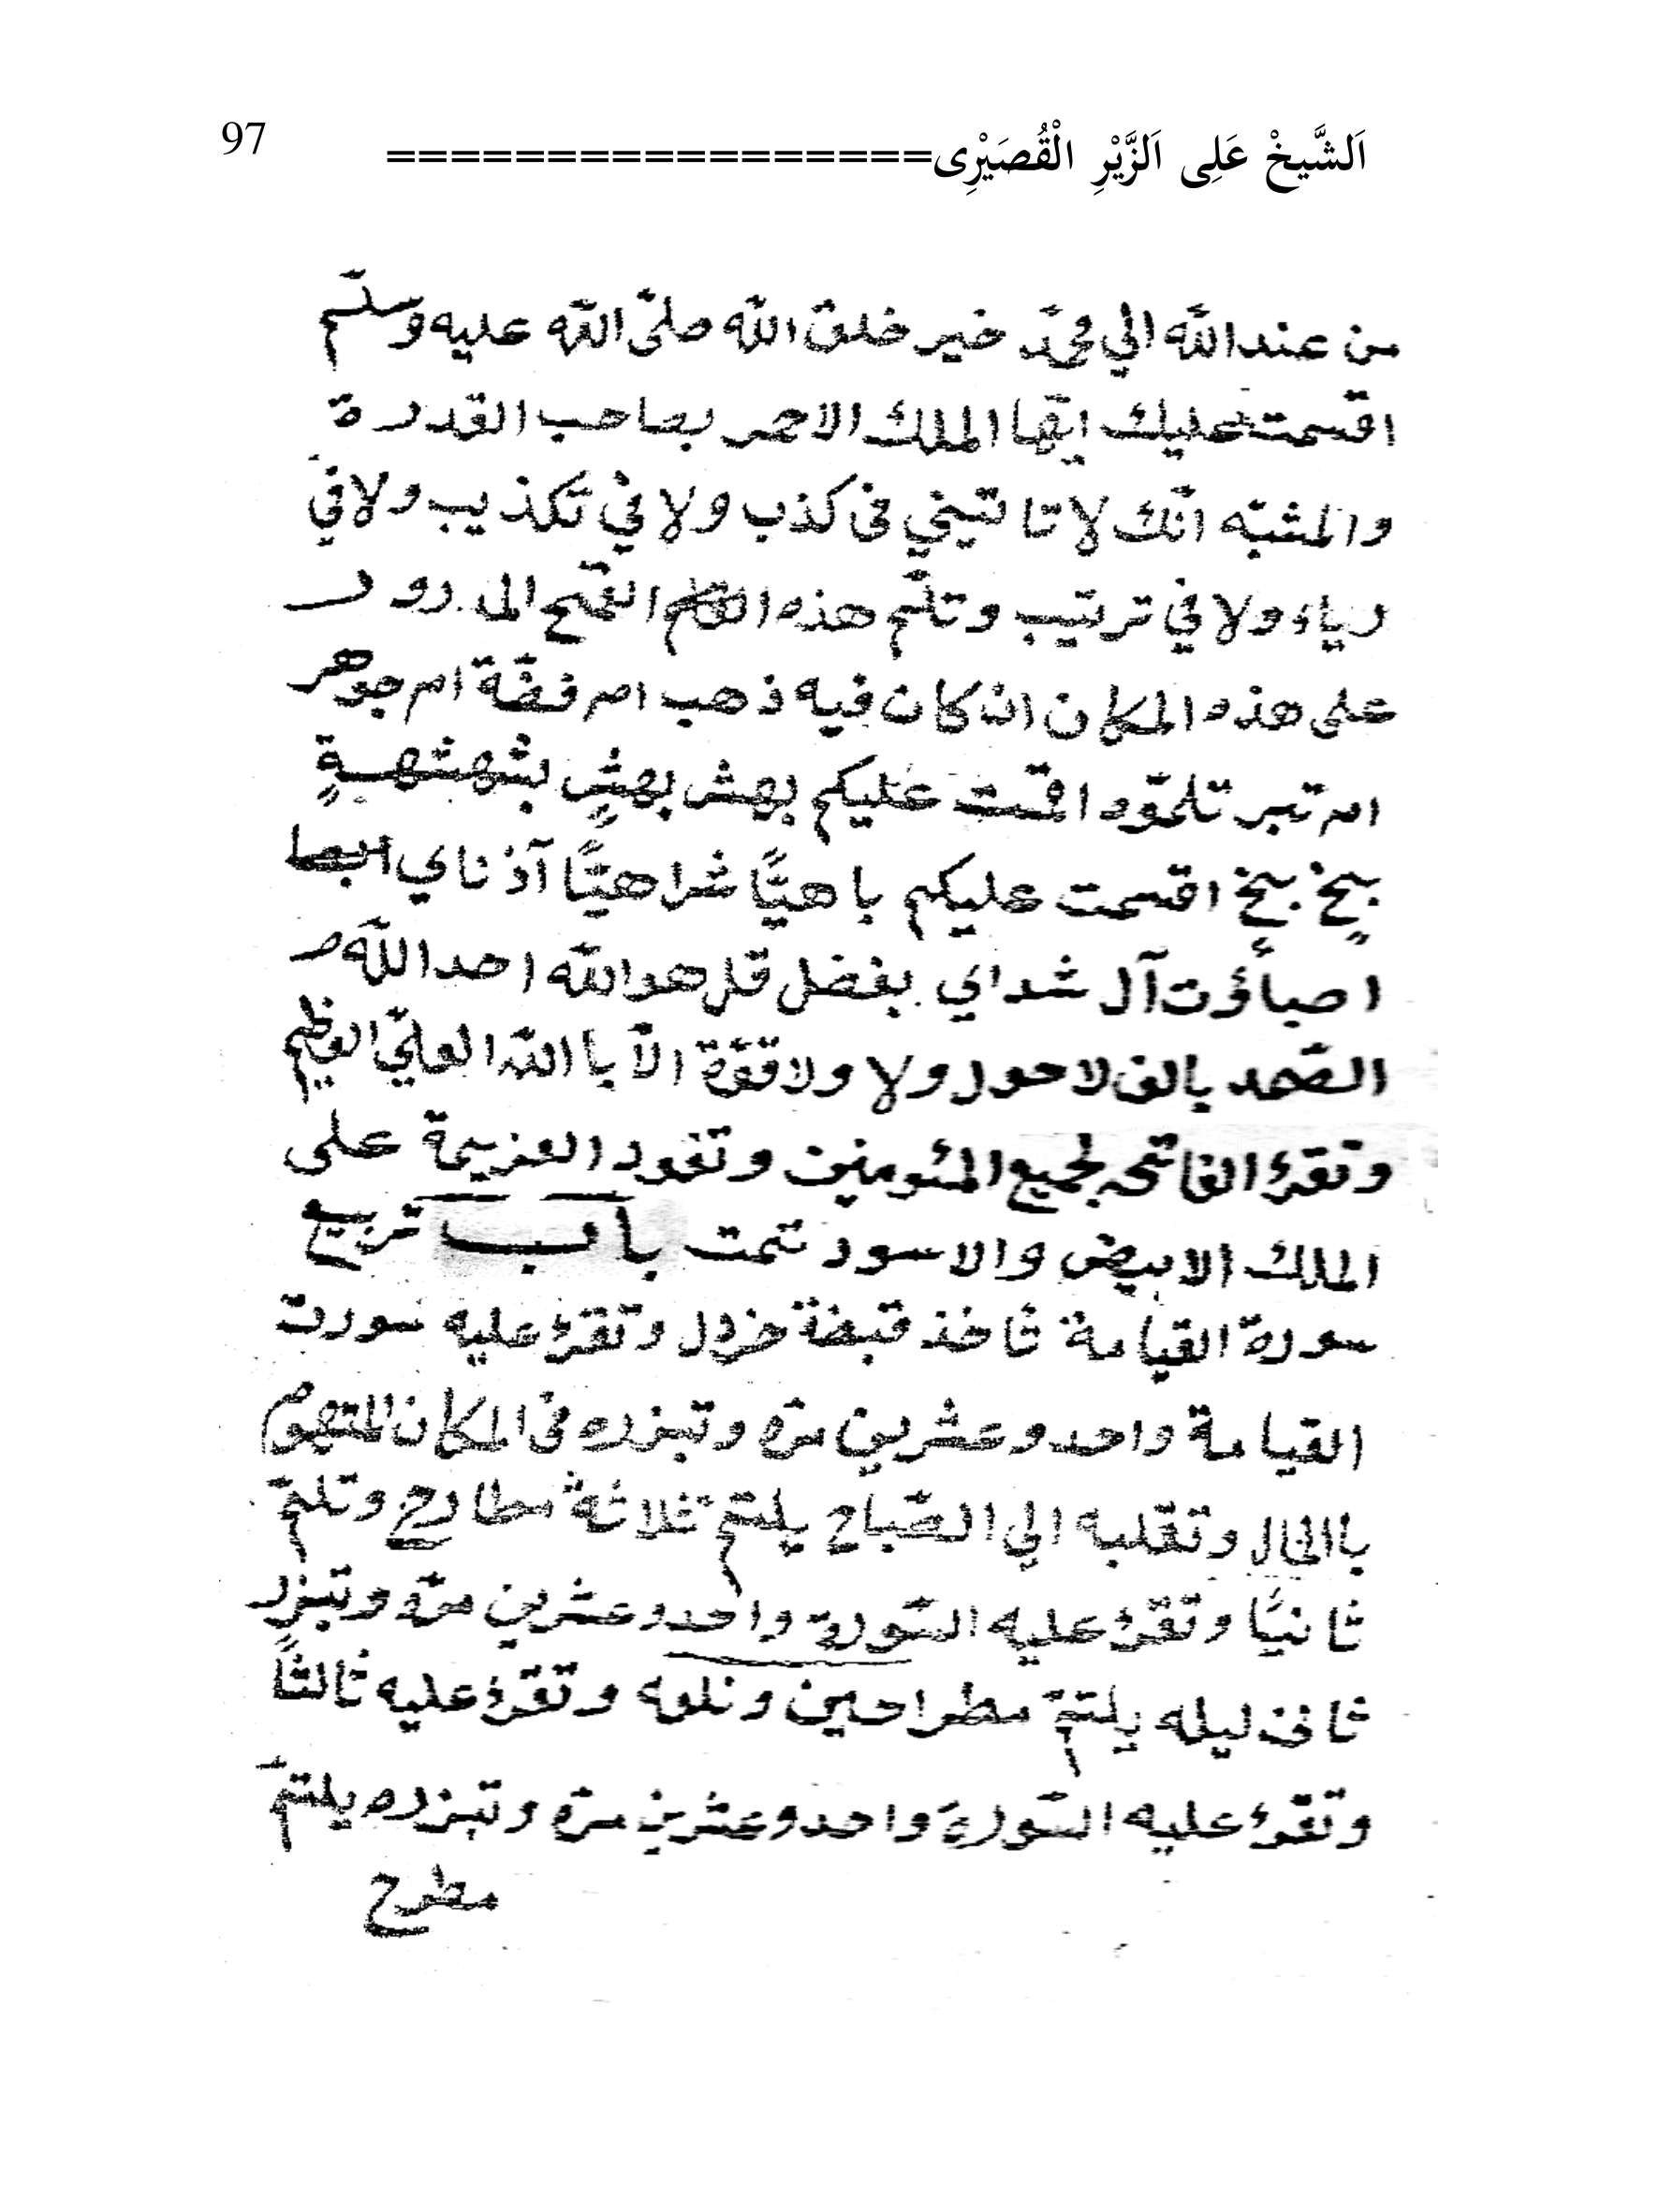 اَلشَّيخْ عَلِى اَلزَّيْرِ الْقُصَيْرِى================= 97
من عند الله الي محمّد خير خلق الله صلّى الله عليه وسلّم
اقسمت عليك ايّها الملك الاحمر بصاحب القدرة
والمثبّه انّك لا تاتيني فى كذب ولا في تكذيب ولا في
رياء ولا في ترتيب وتلّم هذه القمح الى
على هذه المكان ان كان فيه ذهب ام فضّة ام جوهر
ام تبر تلمّوه اقمت عليكم بهش بهشٍ بشهشهبةٍ
بخٍ بخٍ اقسمت عليكم با هيًّا شراهيًّا آذناي
اصباؤت آل شداي بفضل قل هو الله احد الله
الصّمد بالف لا حول ولا ولا قوّة الّا با الله العليّ العظيم
وتقرئ الفاتحه لجميع المئومنين وتعود العزيمة على
الملك الابيض والاسود تمت باب تربيع
سورة القيامة تاخذ قبضة خردل وتقرئ عليه سورت
القيامة واحد وعشرين مرّه وتبزره فى المكان المتهوم
باالخال وتقلبه الي الصّباح يلتمّ ثلاثة مطارح وتلمّ
ثانيًا وتقرئ عليه السّورة واحد وعشرين مرّة وتبزر
ثانى ليله يلتمّ مطراحين وتلمه وتقرئ عليه ثالثاً
وتقرئ عليه السّورة واحد وعشرين مرّه وتبزره يلتمّ
مطرح